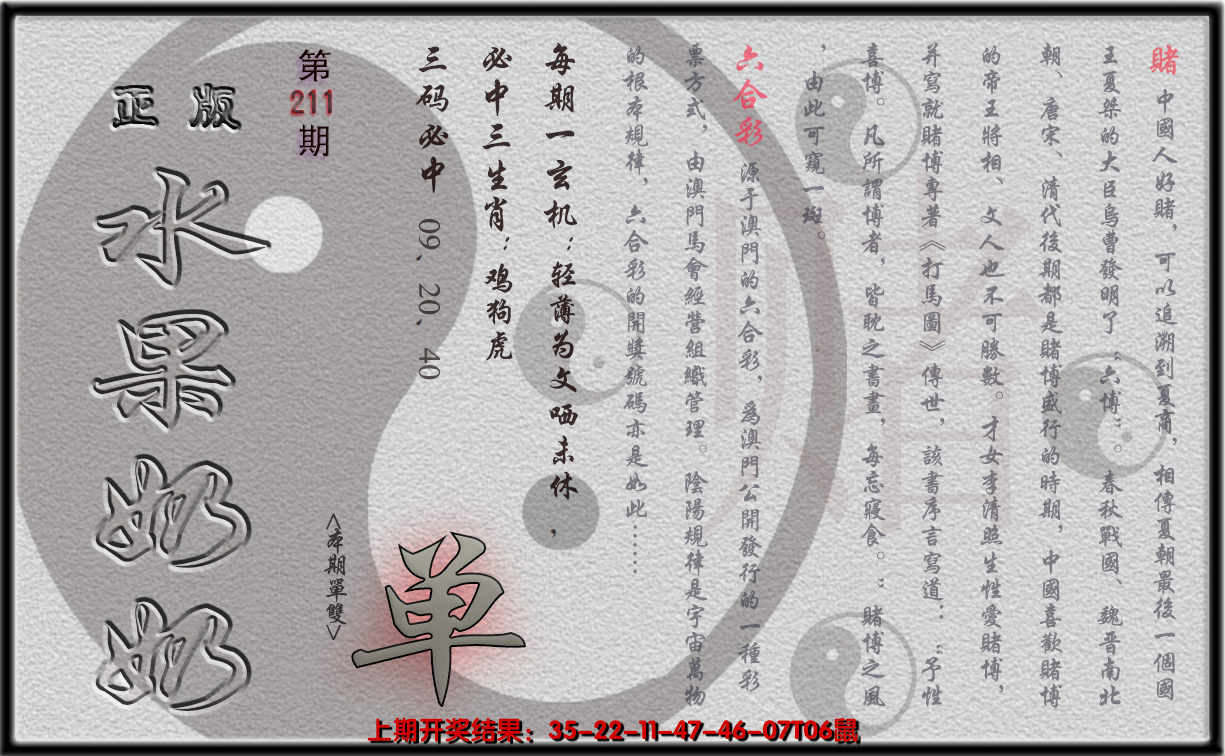 賭 中國人好賭，可以追溯到夏商，相傳夏朝最後一個國
王夏桀的大臣烏曹發明了“六博”。春秋戰國、魏晋南北
朝、唐宋、清代後期都是賭博盛行的時期，中國喜歡賭博
的帝王將相、文人也不可勝數。才女李清照生性愛賭博，
并寫就賭博專著《打馬圖》傳世，該書序言寫道：“予性
喜博。凡所謂博者，皆耽之書晝，每忘寢食。”賭博之風
，由此可窺一斑。
六合彩 源于澳門的六合彩，爲澳門公開發行的一種彩
票方式，由澳門馬會經營組織管理。陰陽規律是宇宙萬物
的根本規律，六合彩的開獎號碼亦是如此……
每期一玄机：轻薄为文哂未休，
必中三生肖：鸡狗虎
三码必中 09、20、40
<本期單雙>
单
第
211
期
正版
水果奶奶
賭
上期开奖结果：35-22-11-47-46-07T06鼠